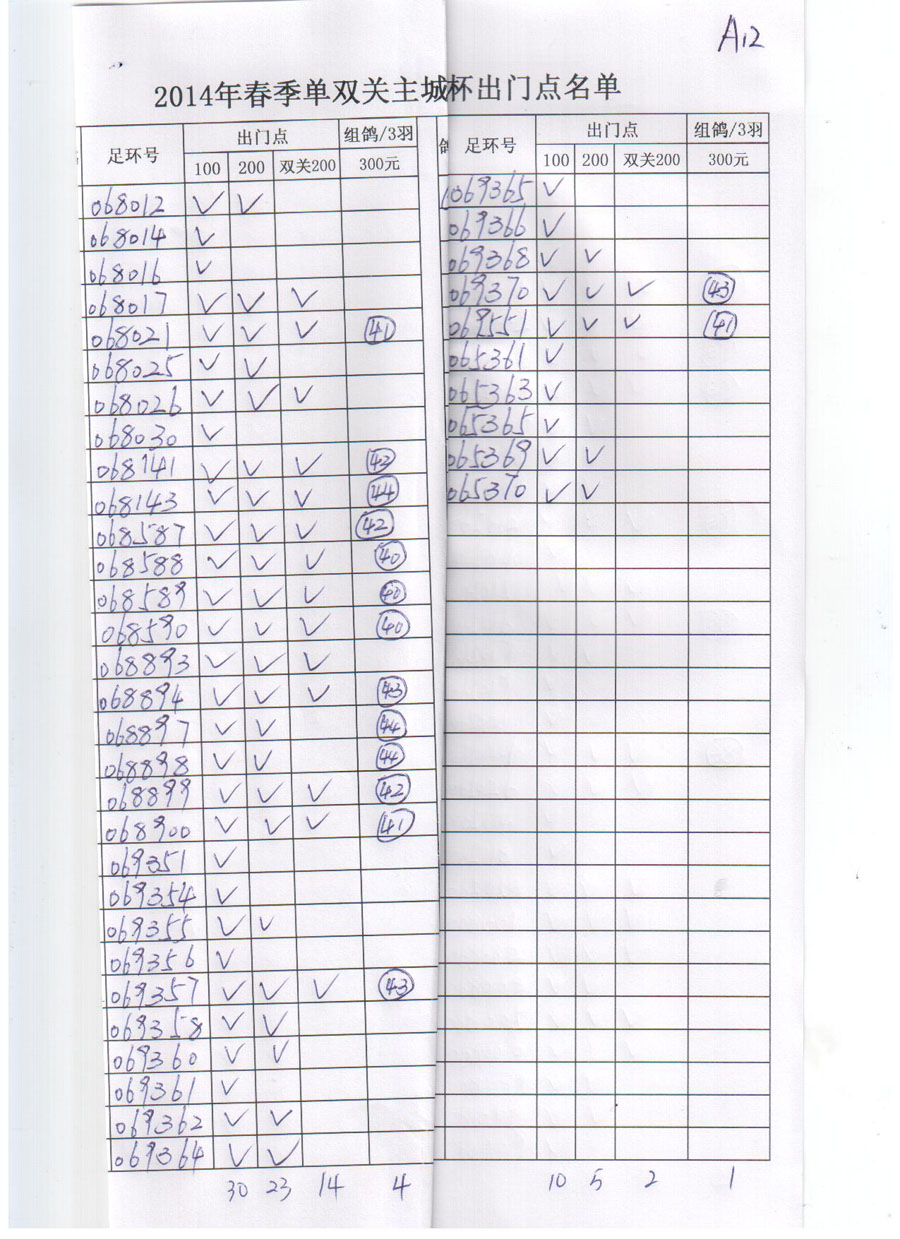 A12
2014年春季单双关主城杯出门点名单
足环号 出门点 组鸽/3羽
100 200 双关200 300元
068012 ✓ ✓
068014 ✓
068016 ✓
068017 ✓ ✓ ✓
068021 ✓ ✓ ✓ 41
068025 ✓ ✓
068026 ✓ ✓ ✓
068030 ✓
068141 ✓ ✓ ✓ 43
068143 ✓ ✓ ✓ 44
068587 ✓ ✓ ✓ 42
068588 ✓ ✓ ✓ 40
068589 ✓ ✓ ✓ 40
068590 ✓ ✓ ✓ 40
068893 ✓ ✓ ✓
068894 ✓ ✓ ✓ 43
068897 ✓ ✓ 44
068898 ✓ ✓ 44
068899 ✓ ✓ ✓ 42
068900 ✓ ✓ ✓ 41
069351 ✓
069354 ✓
069355 ✓ ✓
069356 ✓
069357 ✓ ✓ ✓ 43
069358 ✓ ✓
069360 ✓ ✓
069361 ✓
069362 ✓ ✓
069364 ✓ ✓
30 23 14 4
足环号 出门点 组鸽/3羽
100 200 双关200 300元
069365 ✓
069366 ✓
069368 ✓ ✓
069370 ✓ ✓ ✓ 43
069551 ✓ ✓ ✓ 41
065361 ✓
065363 ✓
065365 ✓
065369 ✓ ✓
065370 ✓ ✓
10 5 2 1